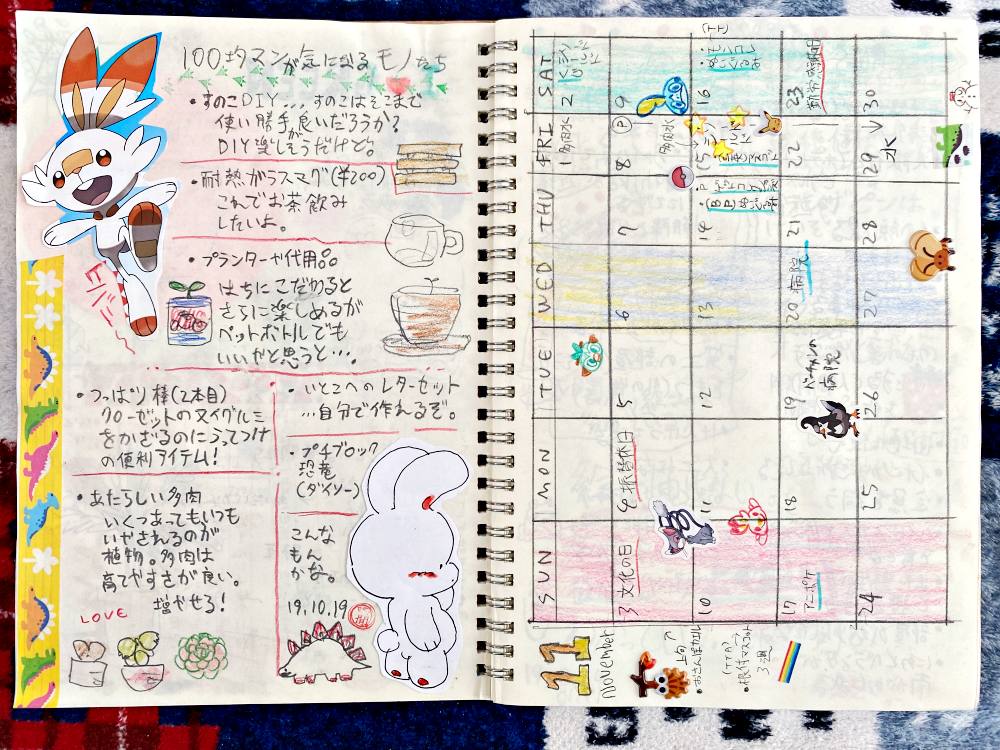 100均マンが気になるモノたち
・すのこDIY...すのこはそこまで
使い勝手が良いだろうか?
DIY楽しそうだけど。
・耐熱ガラスマグ(¥200)
これでお茶飲み
したいよ。
・プランターや代用品
はちにこだわると
さらに楽しめるが
ペットボトルでも
いいかと思うと…。
・つっぱり棒(2本目)
クローゼットのヌイグルミ
をかざるのにうってつけ
の便利アイテム!
・いとこへのレターセット
…自分で作れるぞ。
・プチブロック
恐竜
(ダイソー)
こんな
もん
かな。
19.10.19
・あたらしい多肉
いくつあってもいつも
いやされるのが
植物。多肉は
育てやすさが良い。
増やせろ!
LOVE
11
November
SUN
MON
TUE
WED
THU
FRI
SAT
1 多肉水
2
3 文化の日
4 振替休日
5
6
7
8
多肉水
9
10
11
12
13
14
15
16
17
18
19
病院
20 病院
21
22
23 勤労感謝の日
24
25
26
27
28
29 水
30
上旬
・おさんぽカエル
・根付マスコット
3週